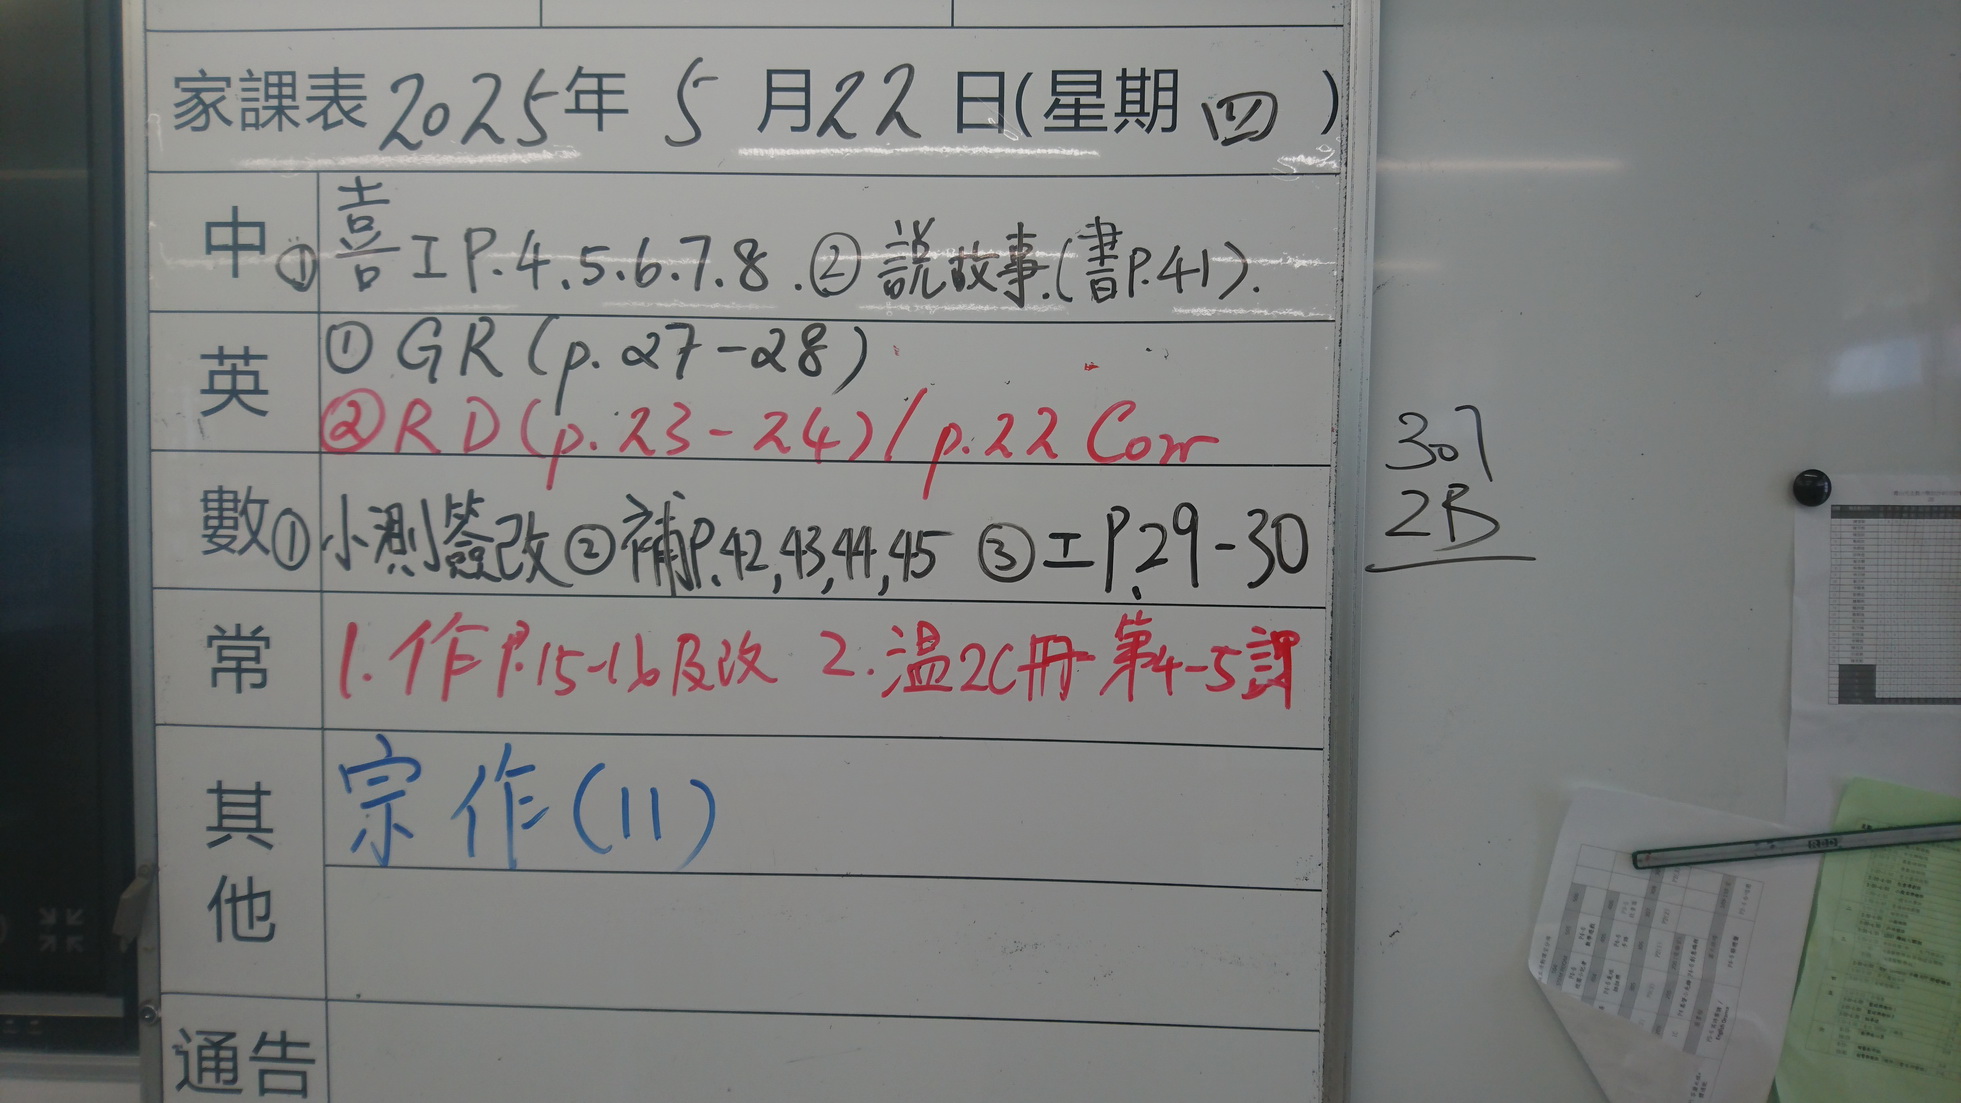 家課表2025年 5 月22日(星期四)
中 ①喜工P.4.5.6.7.8.②說故事.(書P.41).
英 ①GR(p.27-28)
②RD(p.23-24)/p.22 Corr
數 ①小測簽改②補P.42,43,44,45 ③工P.29-30
常 1.作P.15-16及改 2.溫2C冊第4-5課
其他 宗作(11)
通告
307
2B